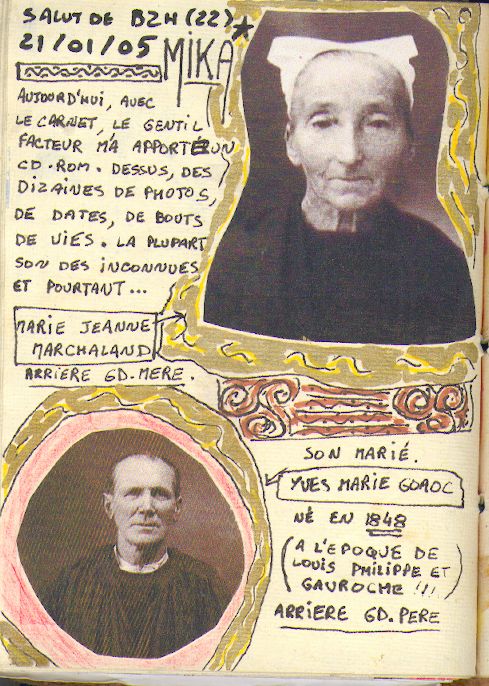 SALUT DE BZH (22)
21/01/05
MIKA
AUJOURD'HUI, AVEC
LE CARNET, LE GENTIL
FACTEUR M'A APPORTÉ UN
CD-ROM. DESSUS, DES
DIZAINES DE PHOTOS,
DE DATES, DE BOUTS
DE VIES. LA PLUPART
SON DES INCONNUES
ET POURTANT...
MARIE JEANNE
MARCHALAND
ARRIERE GD. MERE.
SON MARIÉ.
YVES MARIE GOROC
NÉ EN 1848
(A L'EPOQUE DE
LOUIS PHILIPPE ET
GAVROCHE !!!)
ARRIERE GD. PERE